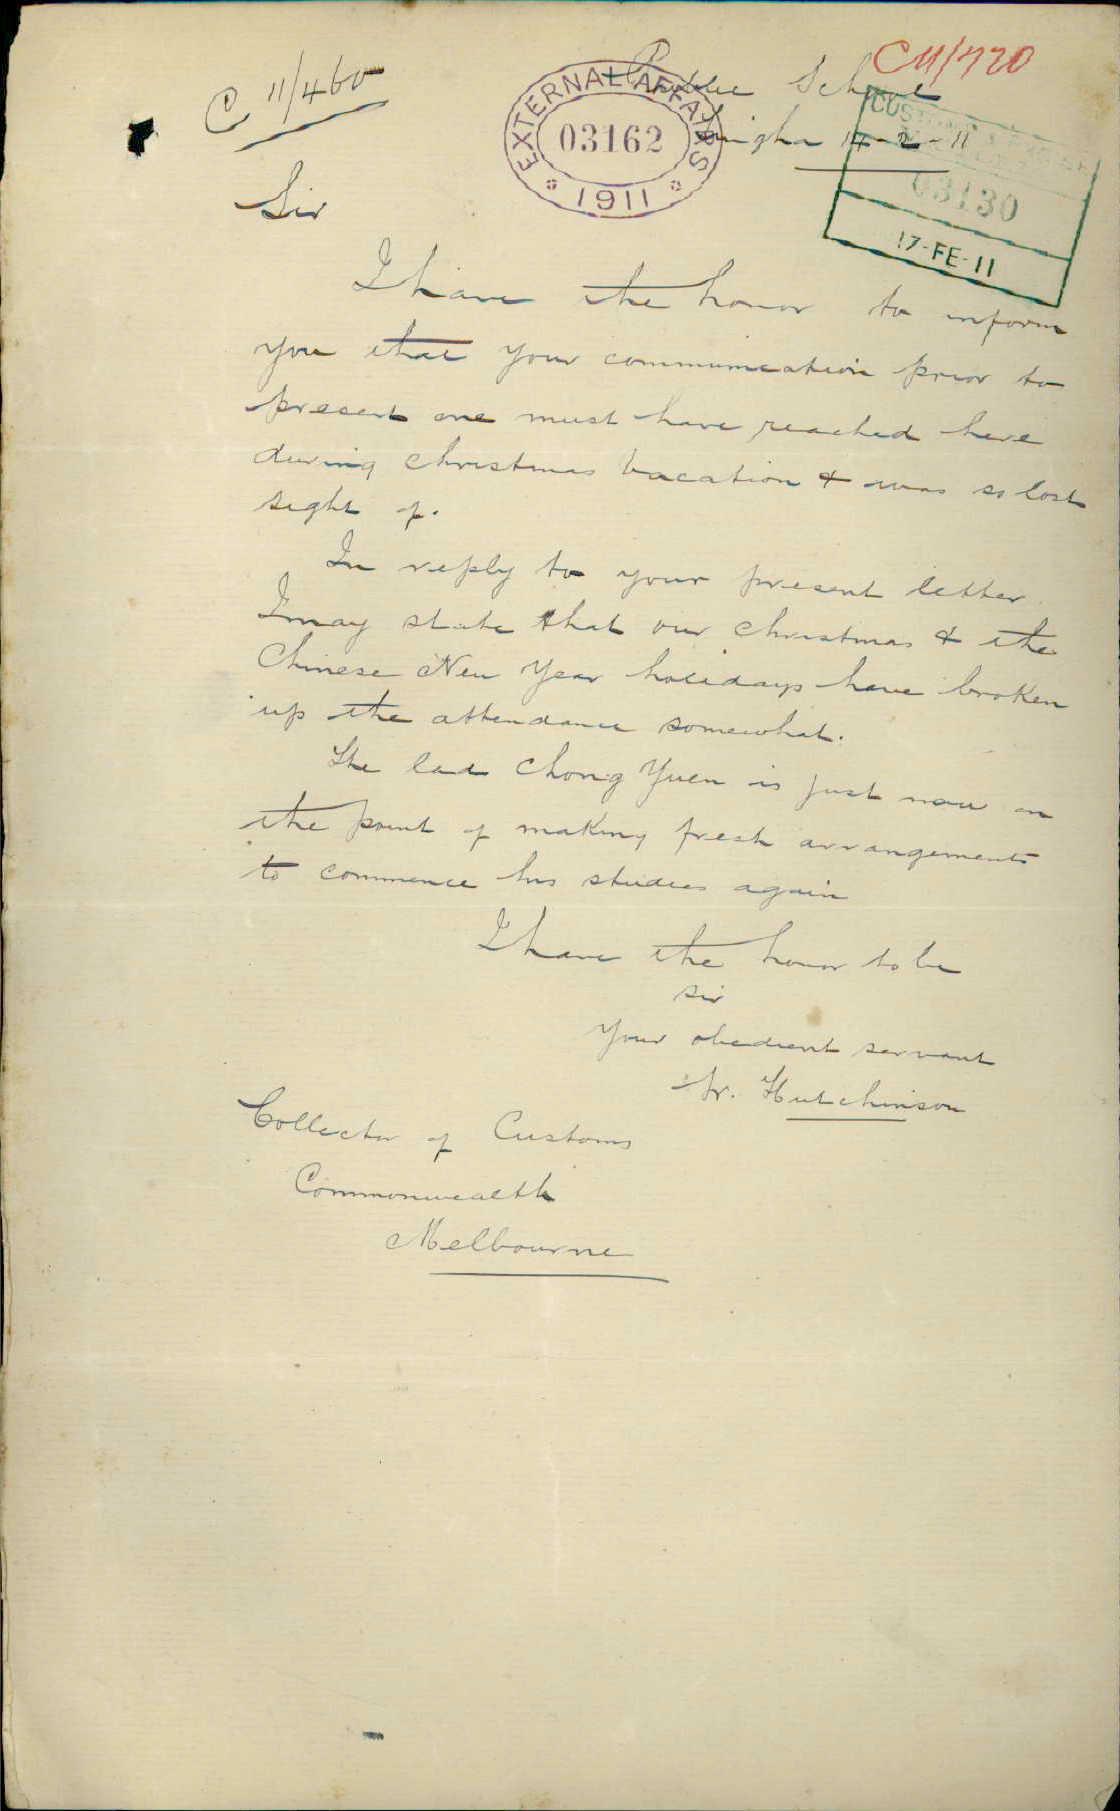 C 11/460
C11/720
EXTERNAL AFFAIRS
03162
1911
03130
17-FE-11
Public School
14-2-11
Sir
I have the honor to inform
you that your communication prior to
present one must have reached here
during christmas vacation & was so lost
sight of.
In reply to your present letter
I may state that our christmas & the
Chinese New Year holidays have broken
up the attendance somewhat.
The lad Chong Yuen is just now on
the point of making fresh arrangements
to commence his studies again
I have the honor to be
Sir
Your obedient servant
W. Hutchinson
Collector of Customs
Commonwealth
Melbourne